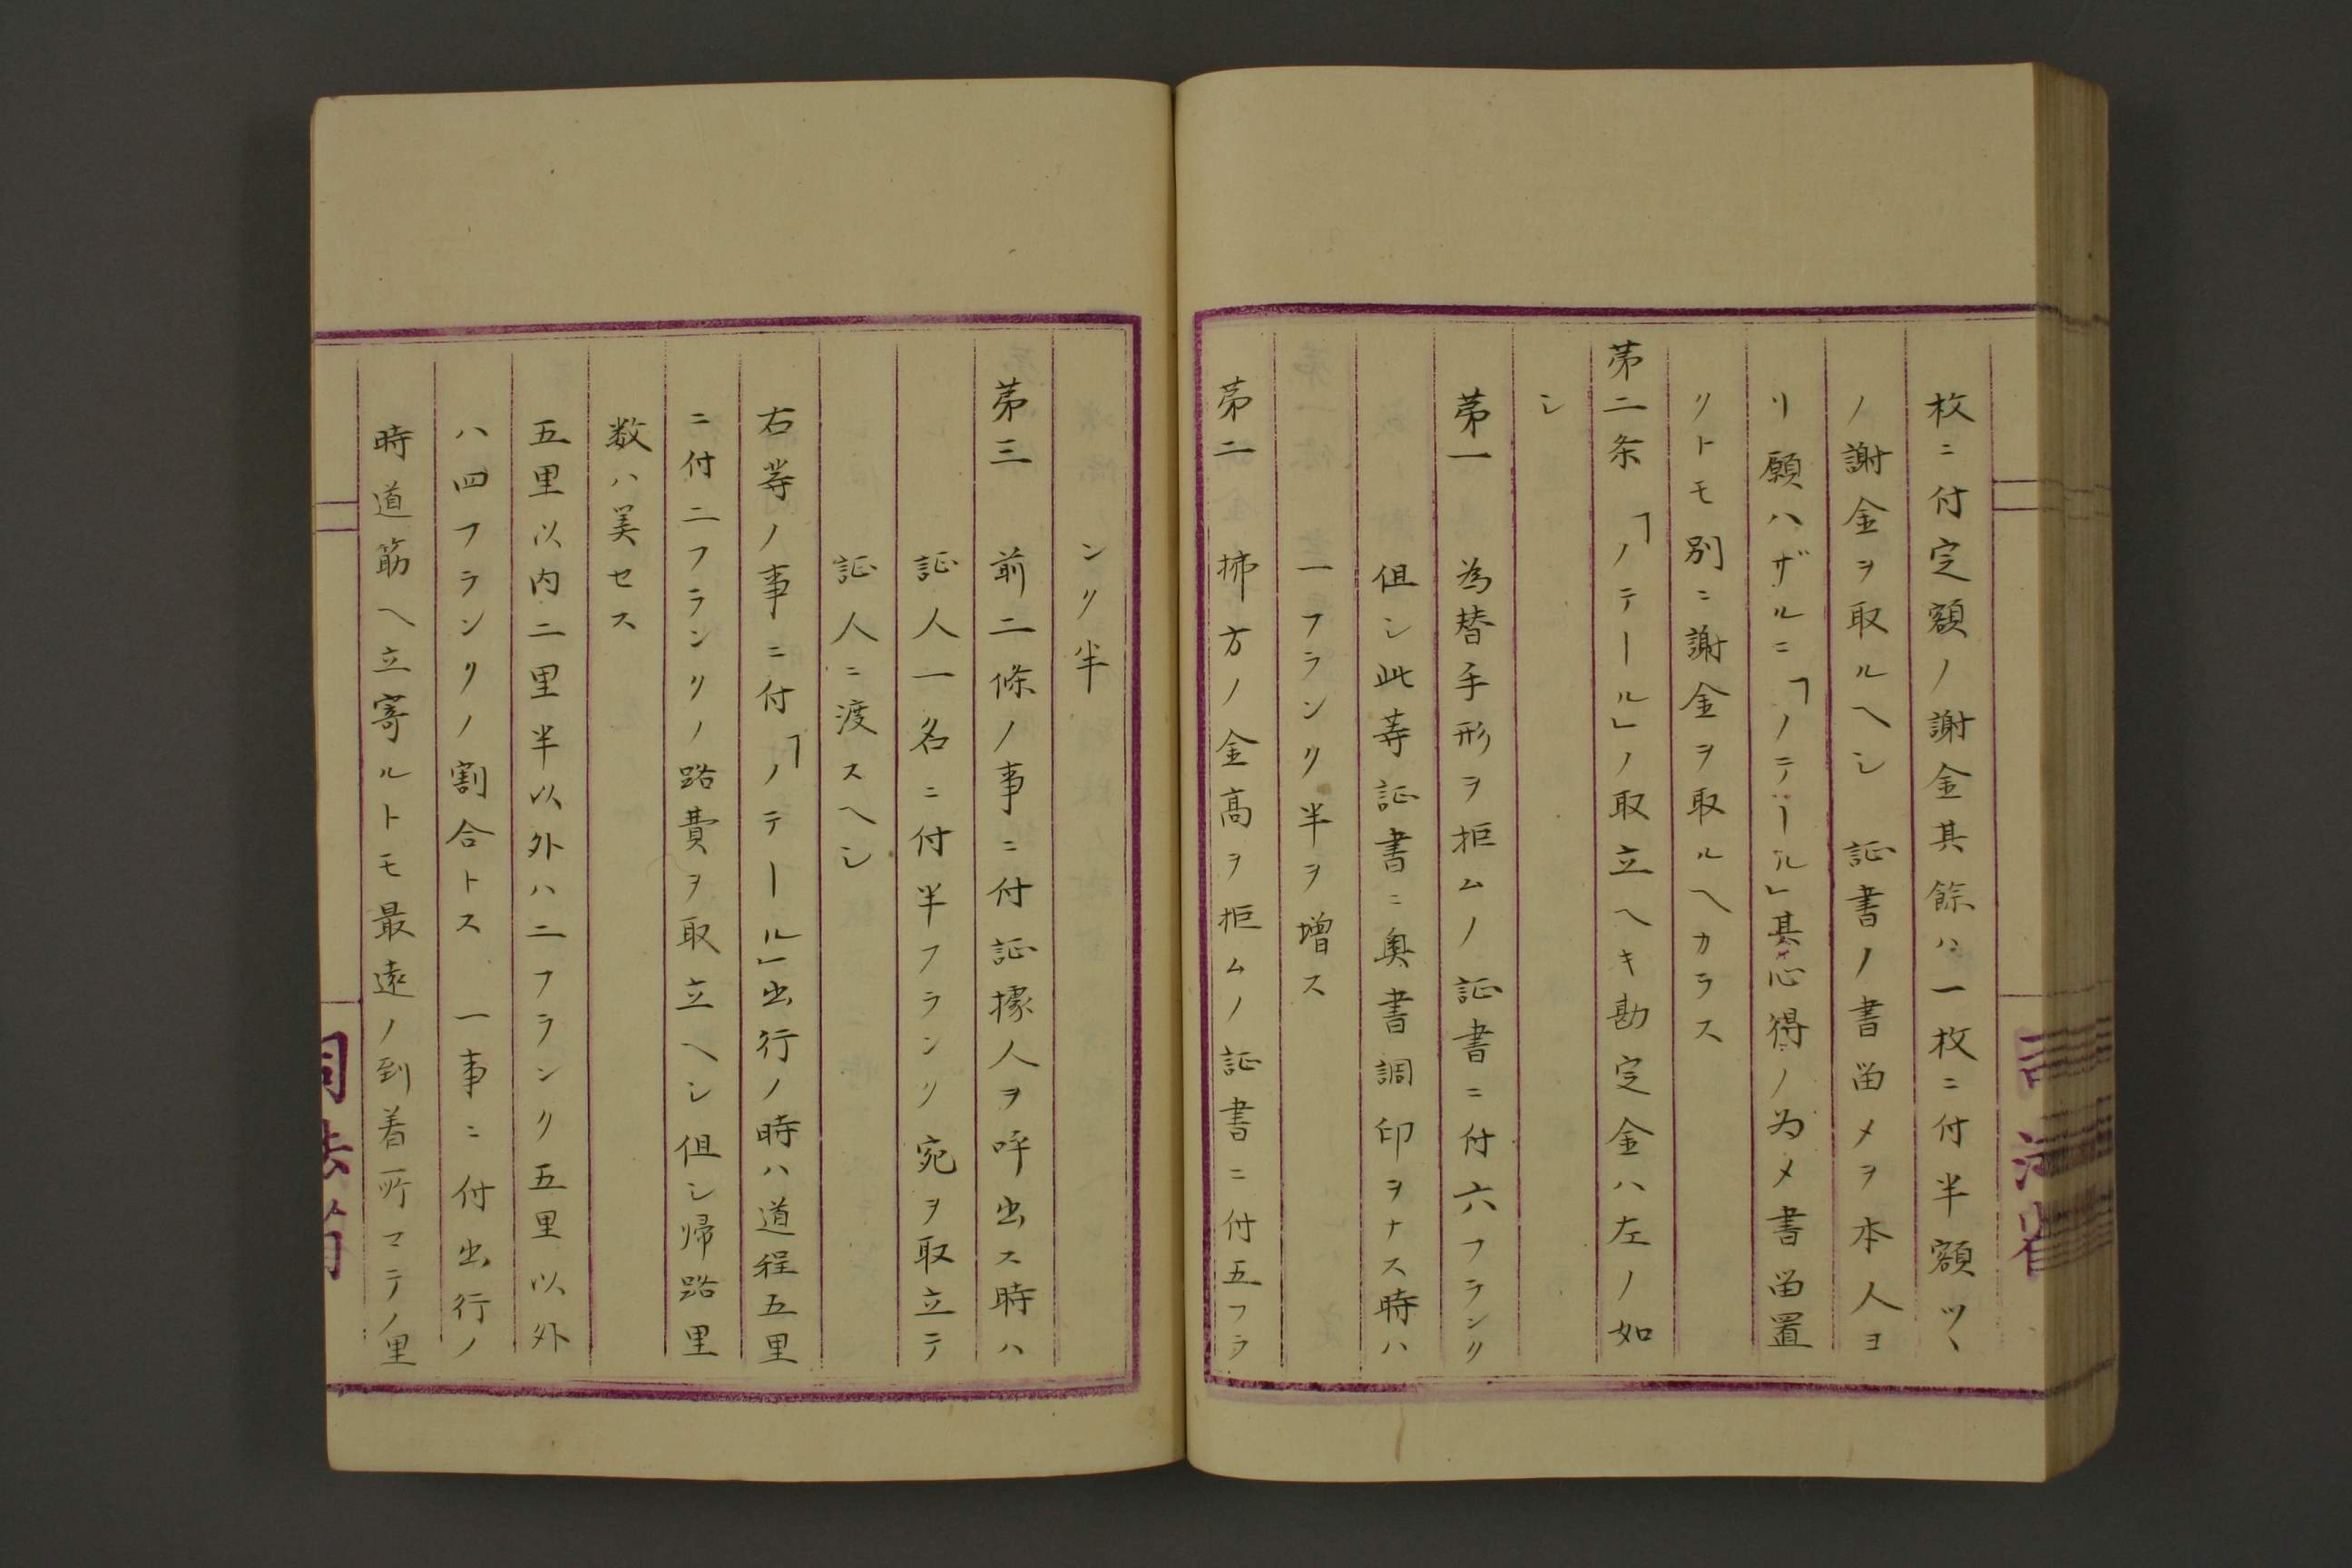 枚ニ付定額ノ謝金其餘ハ一枚ニ付半額ツヽ
ノ謝金ヲ取ルヘシ　証書ノ書畄メヲ本人ヨ
リ願ハザルニ「ノテール」其心得ノ為メ書畄置
クトモ別ニ謝金ヲ取ルヘカラス
第二条「ノテール」ノ取立ヘキ勘定金ハ左ノ如
シ
第一　為替手形ヲ拒ムノ証書ニ付六フランク
但シ此等証書ニ奥書調印ヲナス時ハ
一フランク半ヲ増ス
第二　拂方ノ金高ヲ拒ムノ証書ニ付五フラ
ンク半
第三　前二條ノ事ニ付証據人ヲ呼出ス時ハ
証人一名ニ付半フランク宛ヲ取立テ
証人ニ渡スヘシ
右等ノ事ニ付「ノテール」出行ノ時ハ道程五里
ニ付二フランクノ路費ヲ取立ヘシ但シ帰路里
数ハ美セス
五里以内二里半以外ハ二フランク五里以外
ハ四フランクノ割合トス　一事ニ付出行ノ
時道筋ヘ立寄ルトモ最遠ノ到着所マテノ里
司法省